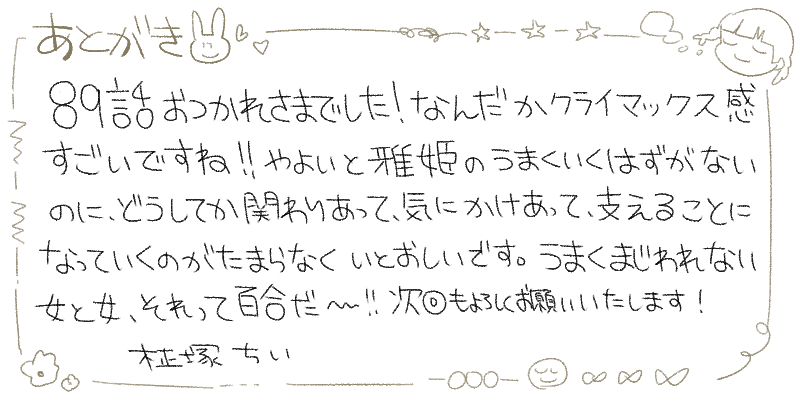 あとがき
89話おつかれさまでした!なんだかクライマックス感
すごいですね!!やよいと雅姫のうまくいくはずがない
のに、どうしてか関わりあって、気にかけあって、支えることに
なっていくのがたまらなくいとおしいです。うまくまじわれない
女と女、それって百合だ〜!!次回もよろしくお願いいたします!
柾塚ちい